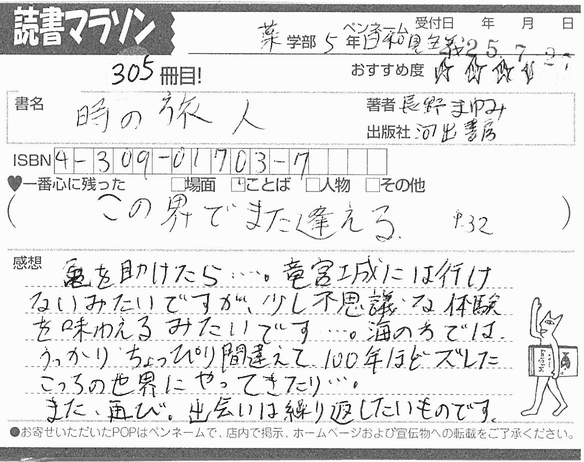 読書マラソン
305冊目!
薬学部 5年 ペンネーム 日和見主義
受付日 年 月 日
25.7.27
おすすめ度 ☆☆☆☆
書名 時の旅人
著者 長野まゆみ
出版社 河出書房
ISBN 4-309-01703-7
♥一番心に残った □場面 □ことば □人物 □その他
(この界でまた逢える. P.32)
感想 亀を助けたら…。竜宮城には行け
ないみたいですが、少し不思議な体験
を味わえるみたいです…。海の方では、
うっかりちょっぴり間違えて100年ほどズレた
こっちの世界にやってきたり…。
また、再び。出会いは繰り返したいものです。
●お寄せいただいたPOPはペンネームで、店内で掲示、ホームページおよび宣伝物への転載をご了承ください。